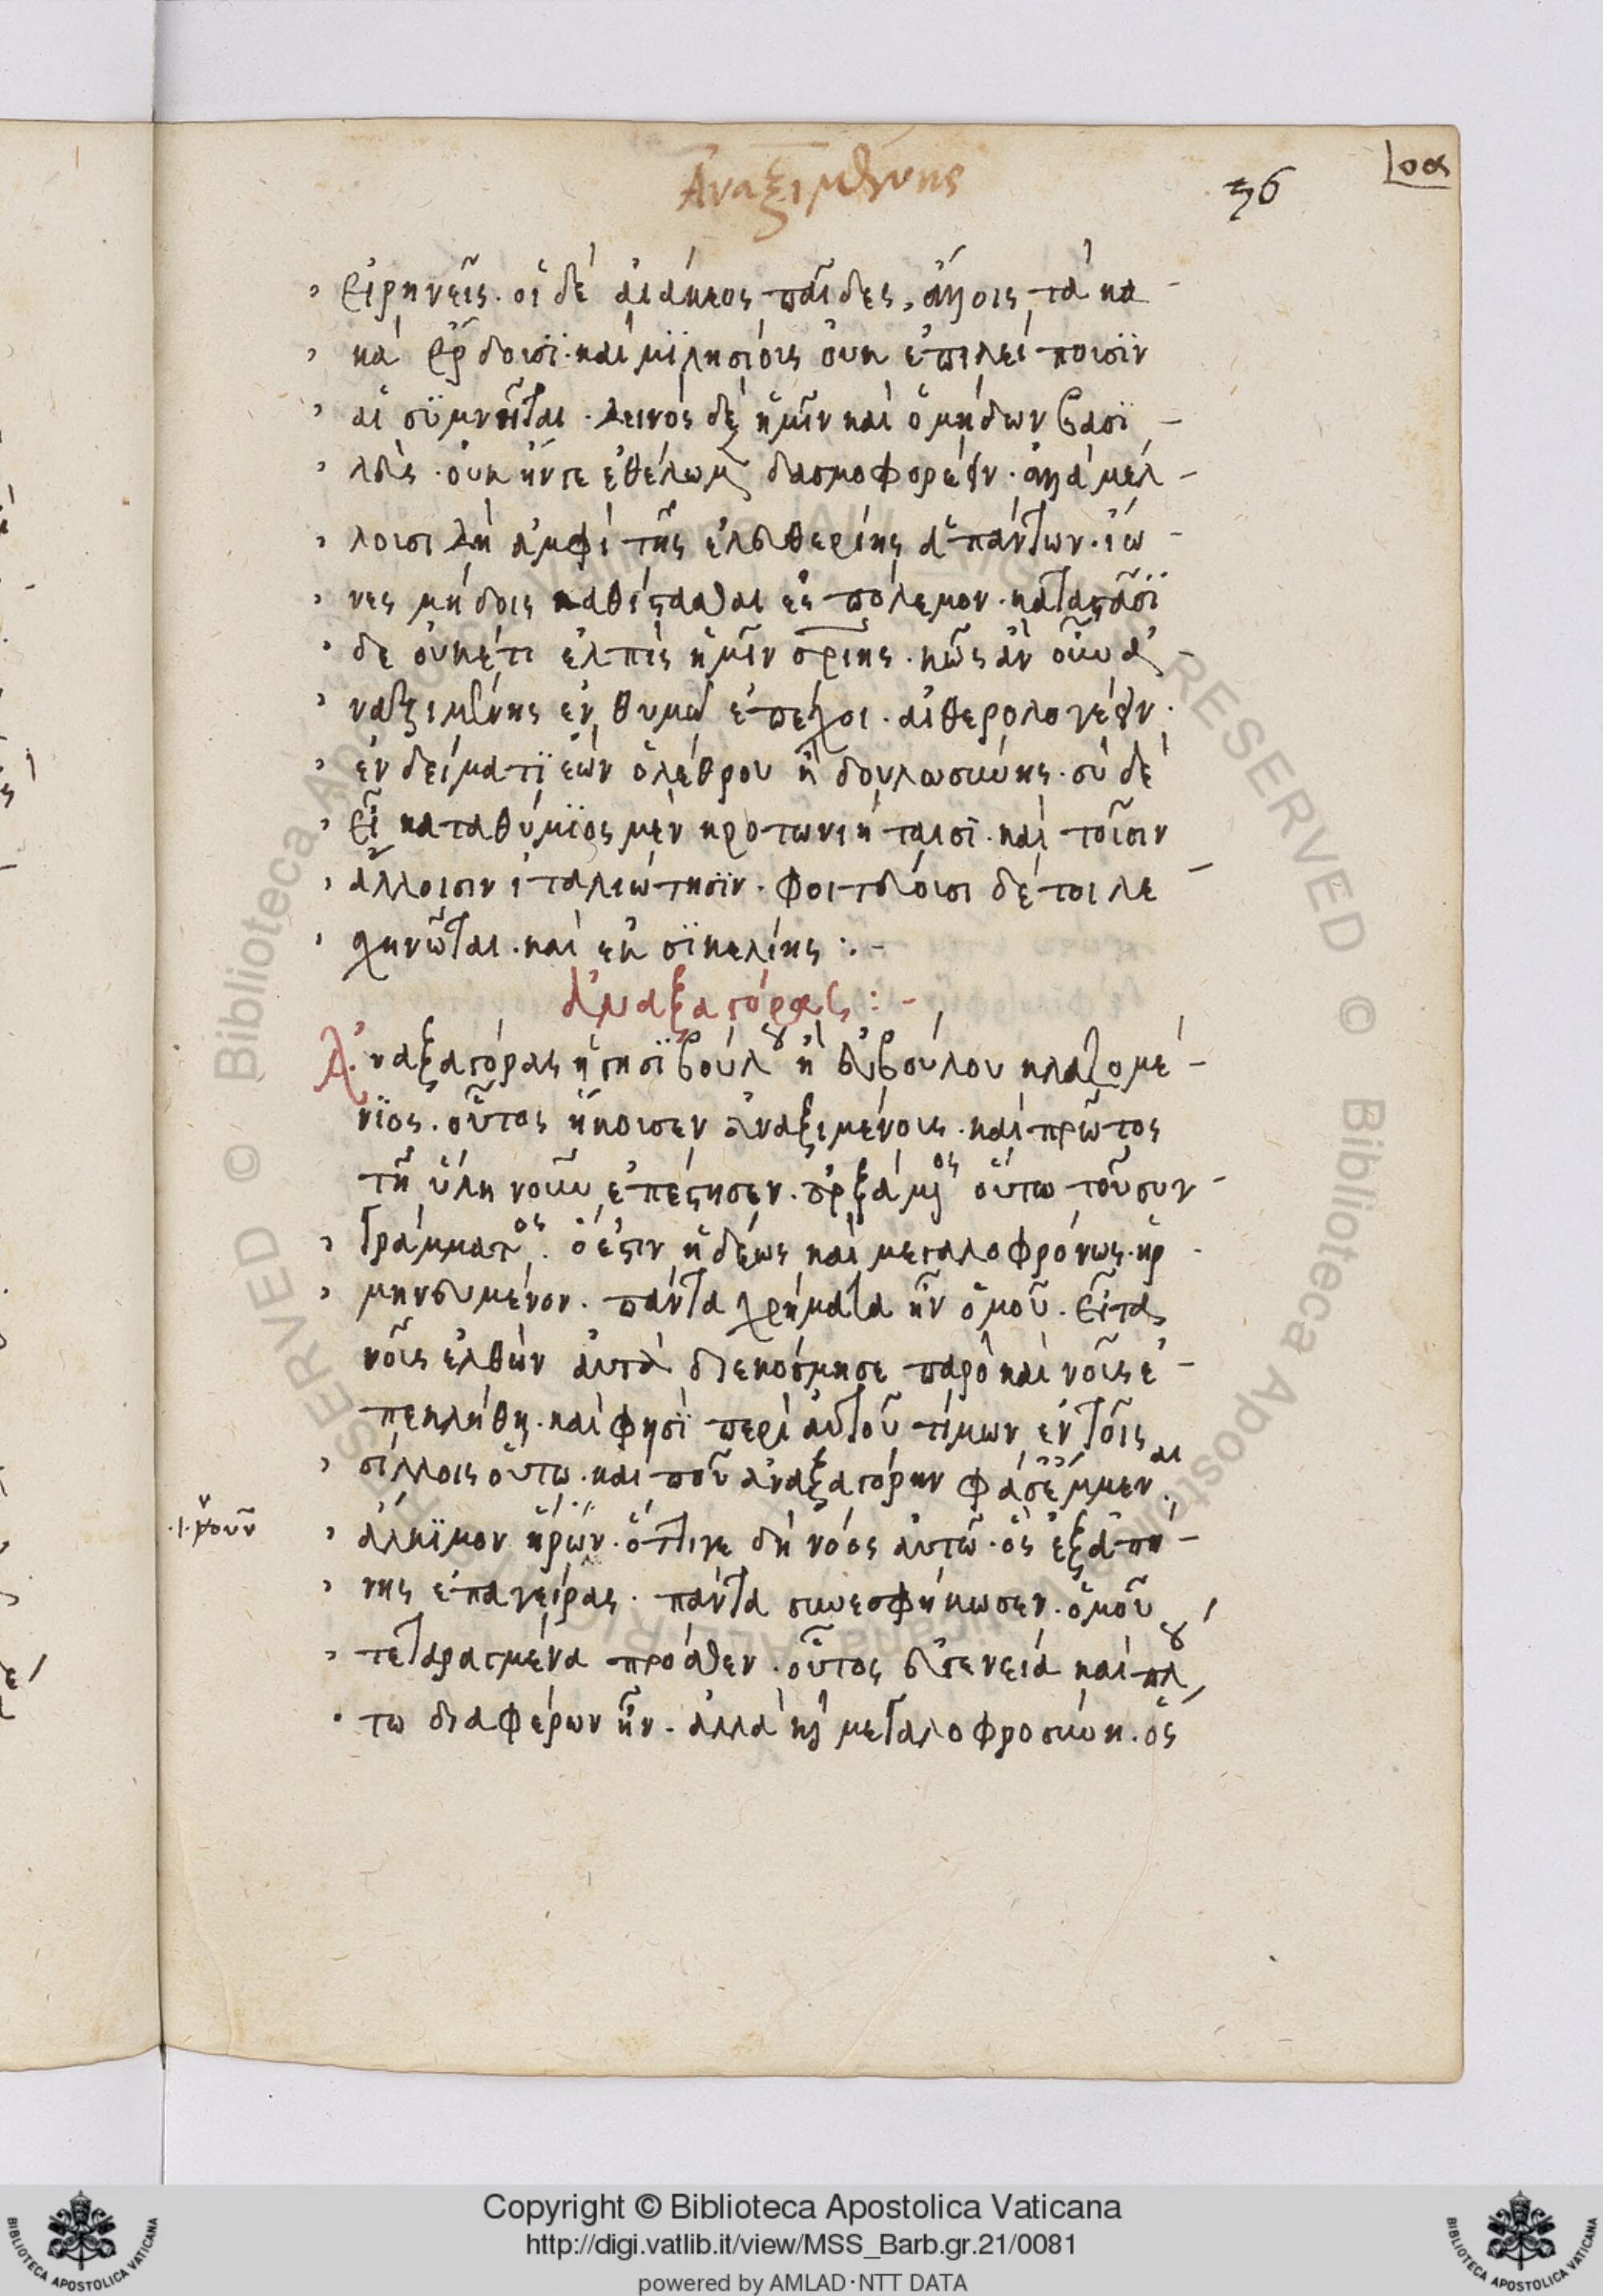 Ἀναξιμένης
36
οα
εἰρηνεῖς. οἱ δὲ αἰάκεος παῖδες, ἄλλοις τὰ κα
κὰ ἔρδοισϊ. καὶ μϊλησίοις οὐκ ἐπιλείποισϊν
αἰσϋμνῆται. δεινὸς δὲ ἡμῖν καὶ ὁ μήδων βασϊ
λεὺς. οὐκ ἤν τε ἐθέλωμεν δασμοφορεῖν. ἀλλὰ μέλ
λοισι δὴ ἀμφὶ τῆς ἐλευθερίης ἁπάντων. ἰω
νες μήδοις καθίστασθαι ἐς πόλεμον. καταστᾶσϊ
δε οὐκέτι ἐλπὶς ἡμῖν σρίης. κῶς ἂν οὖν ἀ
ναξιμένης ἐν θυμῷ ἐπεχοι. αἰθερολογεῖν.
ἐν δείματϊ ἐὼν ὀλέθρου ἢ δουλωσύνης. σὺ δὲ
εἶ καταθύμϊος μὲν κροτωνιήταισϊ. καὶ τοῖσιν
ἄλλοισιν ἰταλιώτησϊν. φοιτέοισι δέ τοι λε
χηνῶται. καὶ ἐκ σϊκελίης :. -
Ἀναξαγόρας : -
Ἀναξαγόρας ἡγησϊβούλου ἢ εὐβούλου κλαζομέ
νϊος. οὗτος ἤκοισεν ἀναξιμένοις. καὶ πρῶτος
τῇ ὕλῃ νοῦν ἐπέστησεν. ἀρξάμενος οὕτω τοῦ συγ
γράμματος. ὅ ἐστιν ἡδέως καὶ μεγαλοφρόνως. ἡρ
μηνευμένον. πάντα χρήματα ἦν ὁμοῦ. εἶτα
νοῦς ἐλθὼν αὐτὰ διεκόσμησε παρὸ καὶ νοῦς ἐ
πεκλήθη. καὶ φησϊ περὶ αὐτοῦ τίμων ἐν τοῖς
σίλλοις οὕτω. καὶ ποῦ ἀναξαγόρην φάσ᾽ ἔμμεναι.
.ι. νοῦν
ἄλκϊμον ἥρων. ὅττι γε δὴ νόος αὐτῷ. ὃς ἐξαπί
νης ἐπαγείρας. πάντα συνεσφήκωσεν. ὁμοῦ
τεταραγμένα πρόσθεν. οὗτος εὐγενείᾳ καὶ πλού
τω διαφέρων ἦν. ἀλλὰ καὶ μεγαλοφροσύνῃ. ὃς
Copyright © Biblioteca Apostolica Vaticana
http://digi.vatlib.it/view/MSS_Barb.gr.21/0081
powered by AMLAD·NTT DATA